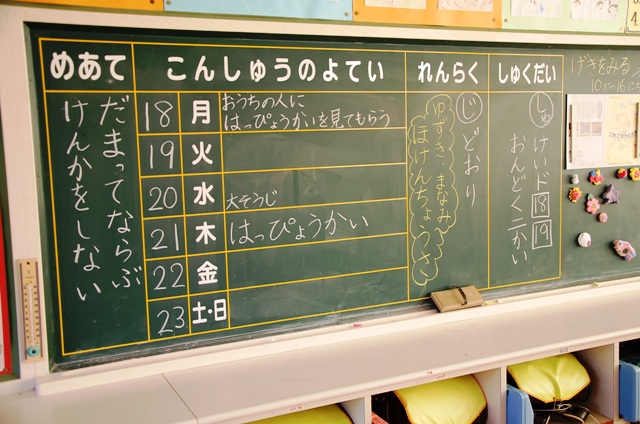 めあて
だまってならぶ
けんかをしない
こんしゅうのよてい
18 月 おうちの人に
はっぴょうかいを見てもらう
19 火
20 水 大そうじ
21 木 はっぴょうかい
22 金
23 土・日
れんらく
じ どおり
ゆずき、まなみ
ほけんちょうさ
しゅくだい
しゅ けいド 18 19
おんどく二かい
げきをみる